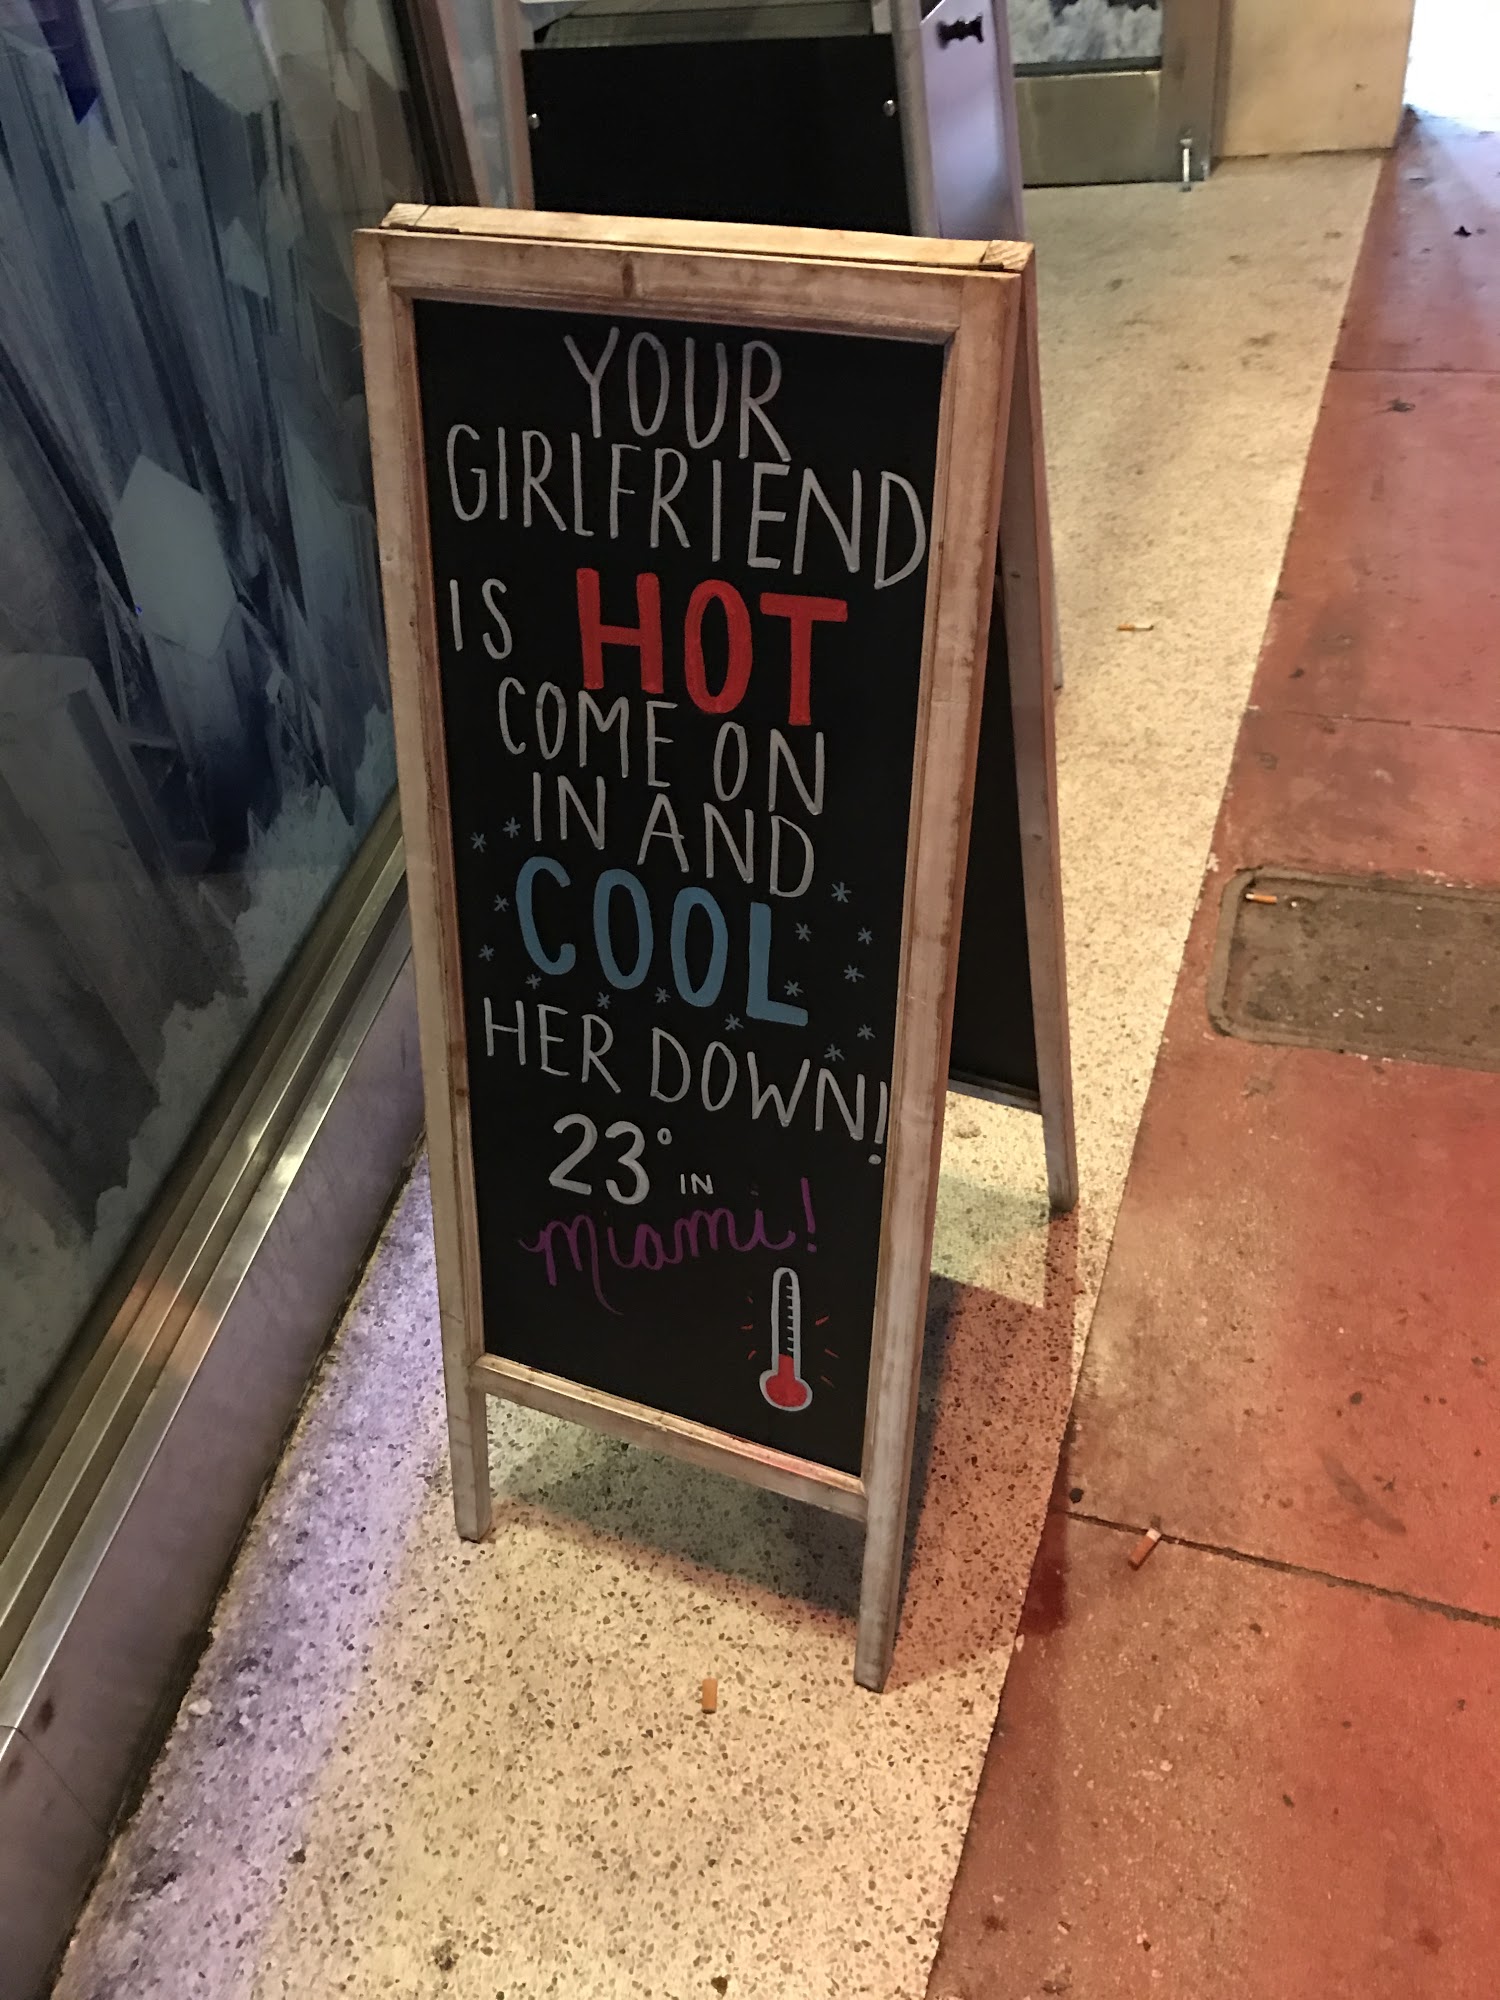 YOUR
GIRLFRIEND
IS HOT
COME ON
IN AND
COOL
HER DOWN!
23° IN
Miami!